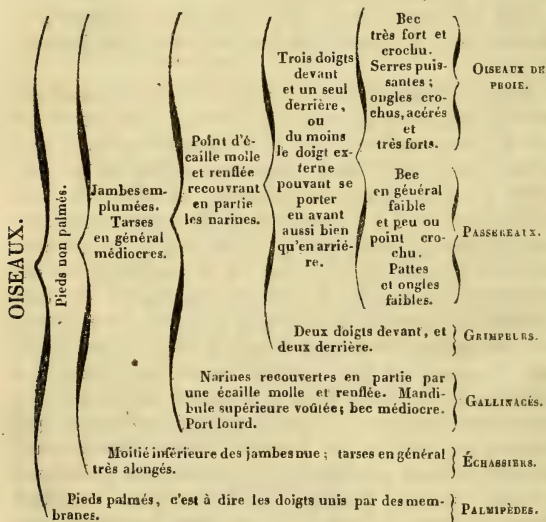 OISEAUX.
Pieds non palmés.
Jambes em-
plumées.
Tarses
en général
médiocres.
Point d'é-
caille molle
et renflée
recouvrant
en partie
les narines.
Trois doigts
devant
et un seul
derrière,
ou
du moins
le doigt ex-
terne
pouvant se
porter
en avant
aussi bien
qu'en arriè-
re.
Bec
très fort et
crochu.
Serres puis-
santes;
ongles cro-
chus, acérés
et
très forts.
OISEAUX DE
PROIE.
Bec
en général
faible
et peu ou
point cro-
chu.
Pattes
et ongles
faibles.
PASSEREAUX.
Deux doigts devant, et
deux derrière.
GRIMPEURS.
Narines recouvertes en partie par
une écaille molle et renflée. Mandi-
bule supérieure voûtée; bec médiocre.
Port lourd.
GALLINACÉS.
Moitié inférieure des jambes nue; tarses en général
très alongés.
ÉCHASSIERS.
Pieds palmés, c'est à dire les doigts unis par des mem-
branes.
PALMIPÈDES.